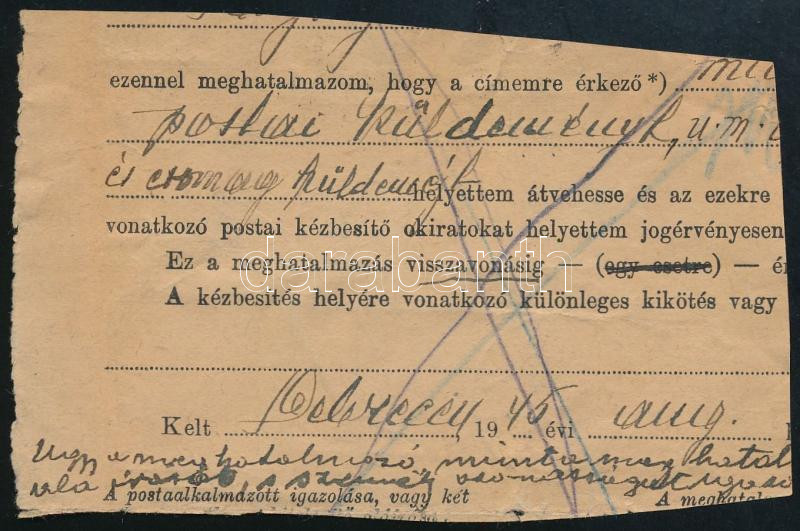 ezennel meghatalmazom, hogy a címemre érkező*)
postai küldemények, u.m.
és csomag küldemények helyettem átvehesse és az ezekre
vonatkozó postai kézbesítő okiratokat helyettem jogérvényesen
Ez a meghatalmazás visszavonásig — (egy esetre) — ér
A kézbesítés helyére vonatkozó különleges kikötés vagy
darabanth
Kelt Debrecen 1945 évi aug.
Ugy a meghatalmazó, mint a meghatal
A postaalkalmazott igazolása, vagy két A meghatal